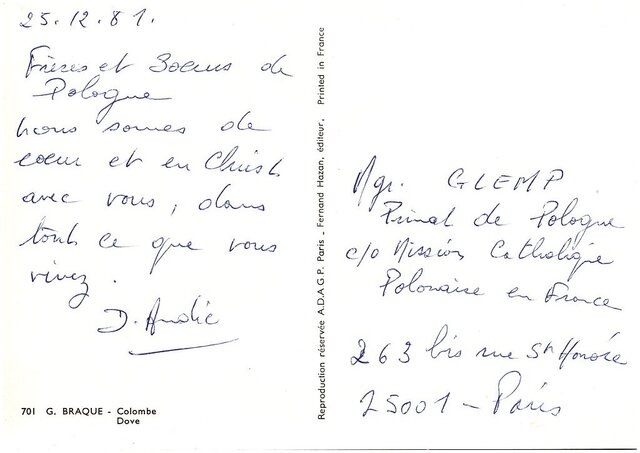 25.12.81.
Frères et Soeurs de
Pologne
nous sommes de
coeur et en Christ
avec vous, dans
tout ce que vous
vivez.
D. Andic
701 G. BRAQUE - Colombe
Dove
Reproduction réservée A.D.A.G.P. Paris - Fernand Hazan, éditeur, Printed in France
Mgr. GLEMP
Primat de Pologne
c/o Mission Catholique
Polonaise en France
263 bis rue St Honoré
75001 - Paris